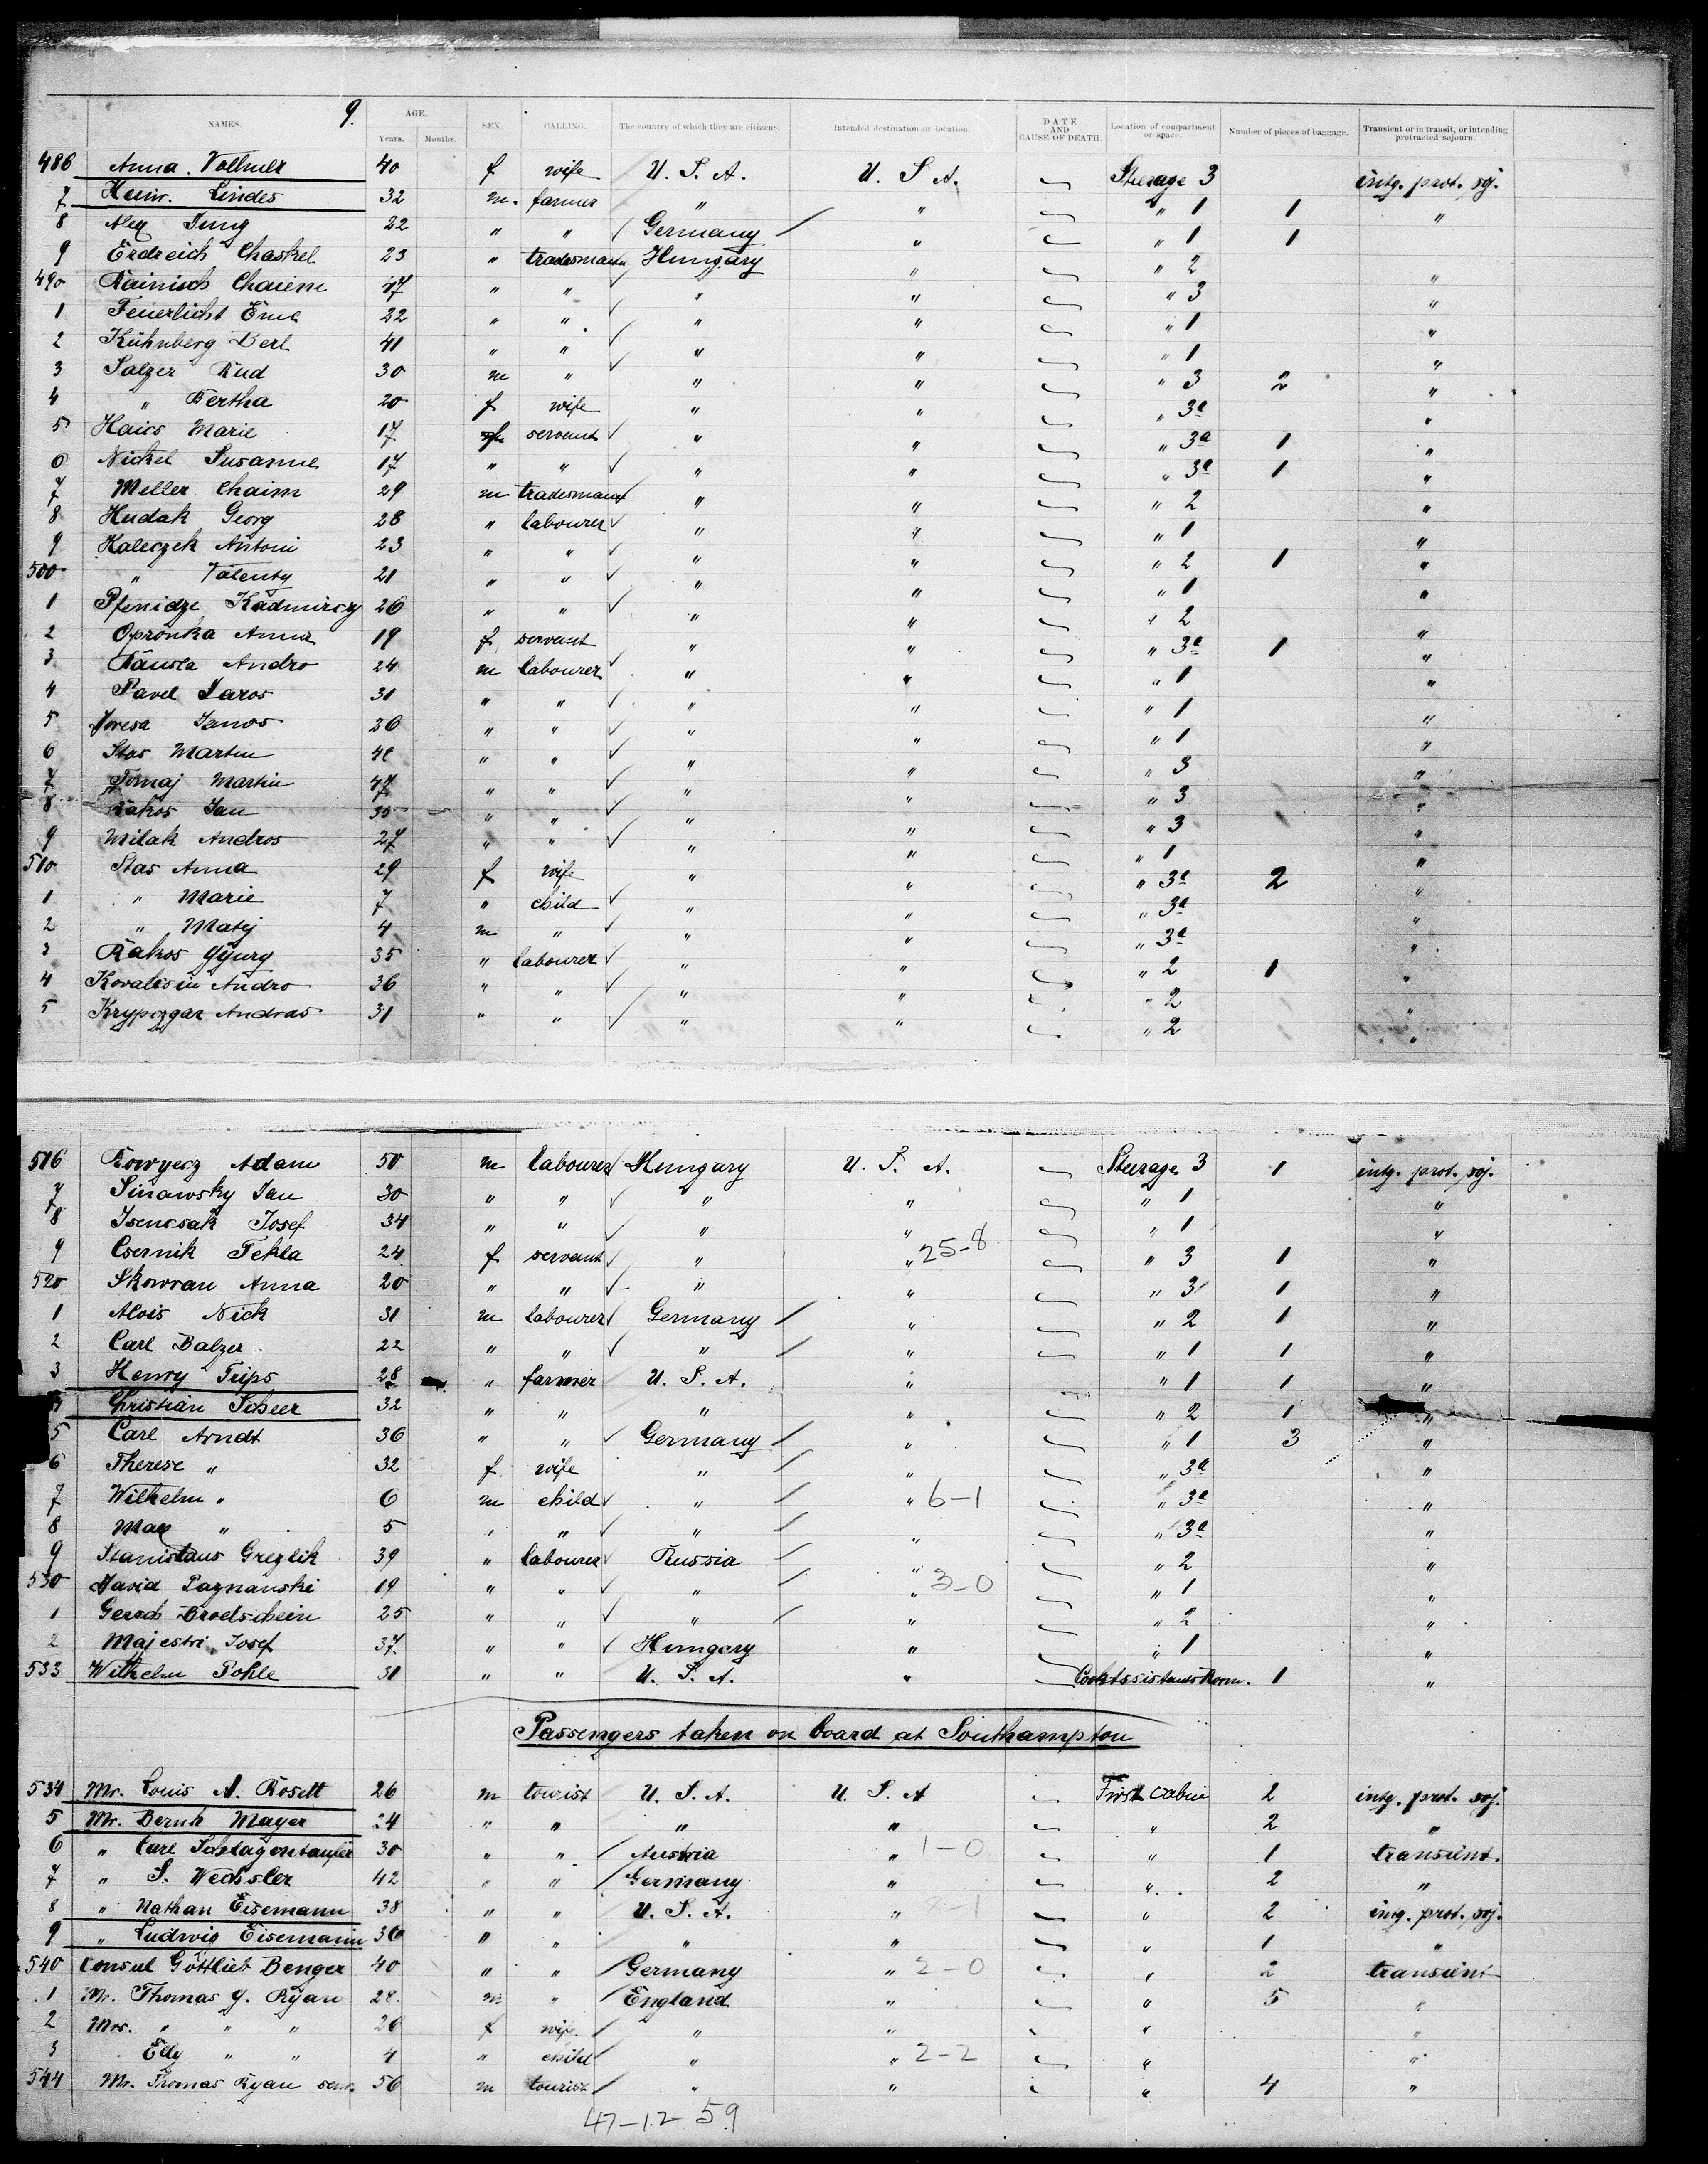 9.
NAMES. AGE. SEX. CALLING. The country of which they are citizens. Intended destination or location. DATE AND CAUSE OF DEATH. Location of compartment or space. Number of pieces of baggage. Transient or in transit, or intending protracted sojourn.
Years. Months.
486 Anna Vollmer 40 f wife U. S. A. U. S. A. Steerage 3 intg. prot. soj.
7 Heinr. Lindes 32 m. farmer " " " 1 1 "
8 Alex Jung 22 " " Germany " " 1 1
9 Erdreich Chaskel 23 " tradesman Hungary " " 2 "
490 Rainisch Chaiem 47 " " " " " 3 "
1 Feuerlicht 22 " " " " " 1 "
2 Kühnberg Berl 41 " " " " " 1 "
3 Salzer Rud 30 m " " " " 3 2 "
4 " Bertha 20 f wife " " " 3a "
5 Haics Marie 17 f servant " " " 3a 1 "
6 Nickel Susanne 17 " " " " " 3a 1 "
7 Meller Chaim 29 m tradesman " " " 2 "
8 Hudak Georg 28 " labourer " " " 1 "
9 Kaleczek Antoni 23 " " " " " 2 1 "
500 " Valenty 21 " " " " " 1 "
1 Pfenidze 26 " " " " " 2 "
2 Opronka Anna 19 f servant " " " 3a 1 "
3 Andro 24 m labourer " " " 1 "
4 Pavel Jaros 31 " " " " " 1 "
5 Janos 26 " " " " " 1 "
6 Stas Martin " " " " " 3 "
7 Tomaj Martin 47 " " " " " 3 "
8 Rakos Jan 35 " " " " " 3 "
9 Milak Andros 27 " " " " " 1 "
510 Stas Anna 29 f wife " " " 3a 2 "
1 " Marie 7 " child " " " 3a "
2 " Matij 4 m " " " " 3a "
3 Rakos Gyurg 35 " labourer " " " 2 1 "
4 Kovalisin Andro 36 " " " " " 2 "
5 Krypczgar Andras 31 " " " " " 2 "
516 Adam 50 m labourer Hungary U. S. A. Steerage 3 1 intg. prot. soj.
7 Sinawsky Jan 30 " " " " " 1 "
8 Isencsak Josef 34 " " " " " 1 "
9 Csernik Tekla 24 f servant " " 25-8 " 3 1 "
520 Skowran Anna 20 " " " " " 3 1 "
1 Alois Nick 31 m labourer Germany " " 2 1 "
2 Carl Balzer 22 " " " " " 1 1 "
3 Henry Trips 28 " farmer U. S. A. " " 1 1 "
4 Christian Scheer 32 " " " " " 2 1 "
5 Carl Arndt 36 " " Germany " " 1 3 "
6 Therese " 32 f wife " " " 3a "
7 Wilhelm " 6 m child " " 6-1 " 3a "
8 Max " 5 " " " " " 3a "
9 Stanislaus Greglik 39 " labourer Russia " " 2 "
530 David Paznanski 19 " " " " 3-0 " 1 "
1 Gersch Broelschein 25 " " " " " 2 "
2 Majestri Josef 37 " " Hungary " " 1 "
533 Wilhelm Pohle 31 " " U. S. A. " Cooks Room. 1 "
Passengers taken on board at Southampton
534 Mr. Louis A. Rosett 26 m tourist U. S. A. U. S. A First Cabin 2 intg. prot. soj.
5 Mr. Bernh Mayer 24 " " " " " 2 "
6 " Carl 30 " " Austria " 1-0 " 1 transient.
7 " S. Wechsler 42 " " Germany " " 2 "
8 " Nathan Eisemann 38 " " U. S. A. " 8-1 " 2 intg. prot. soj.
9 " Ludwig Eisemann 36 " " " " " 1 "
540 Consul Gottlieb Benger 40 " " Germany " 2-0 " 2 transient
1 Mr. Thomas J. Ryan 28 m " England " " 5 "
2 Mrs. " " " 26 f wife " " " "
3 Elly " " 4 " child " " 2-2 " "
544 Mr. Thomas Ryan sen. 56 m tourist " " " 4 "
47-12 59